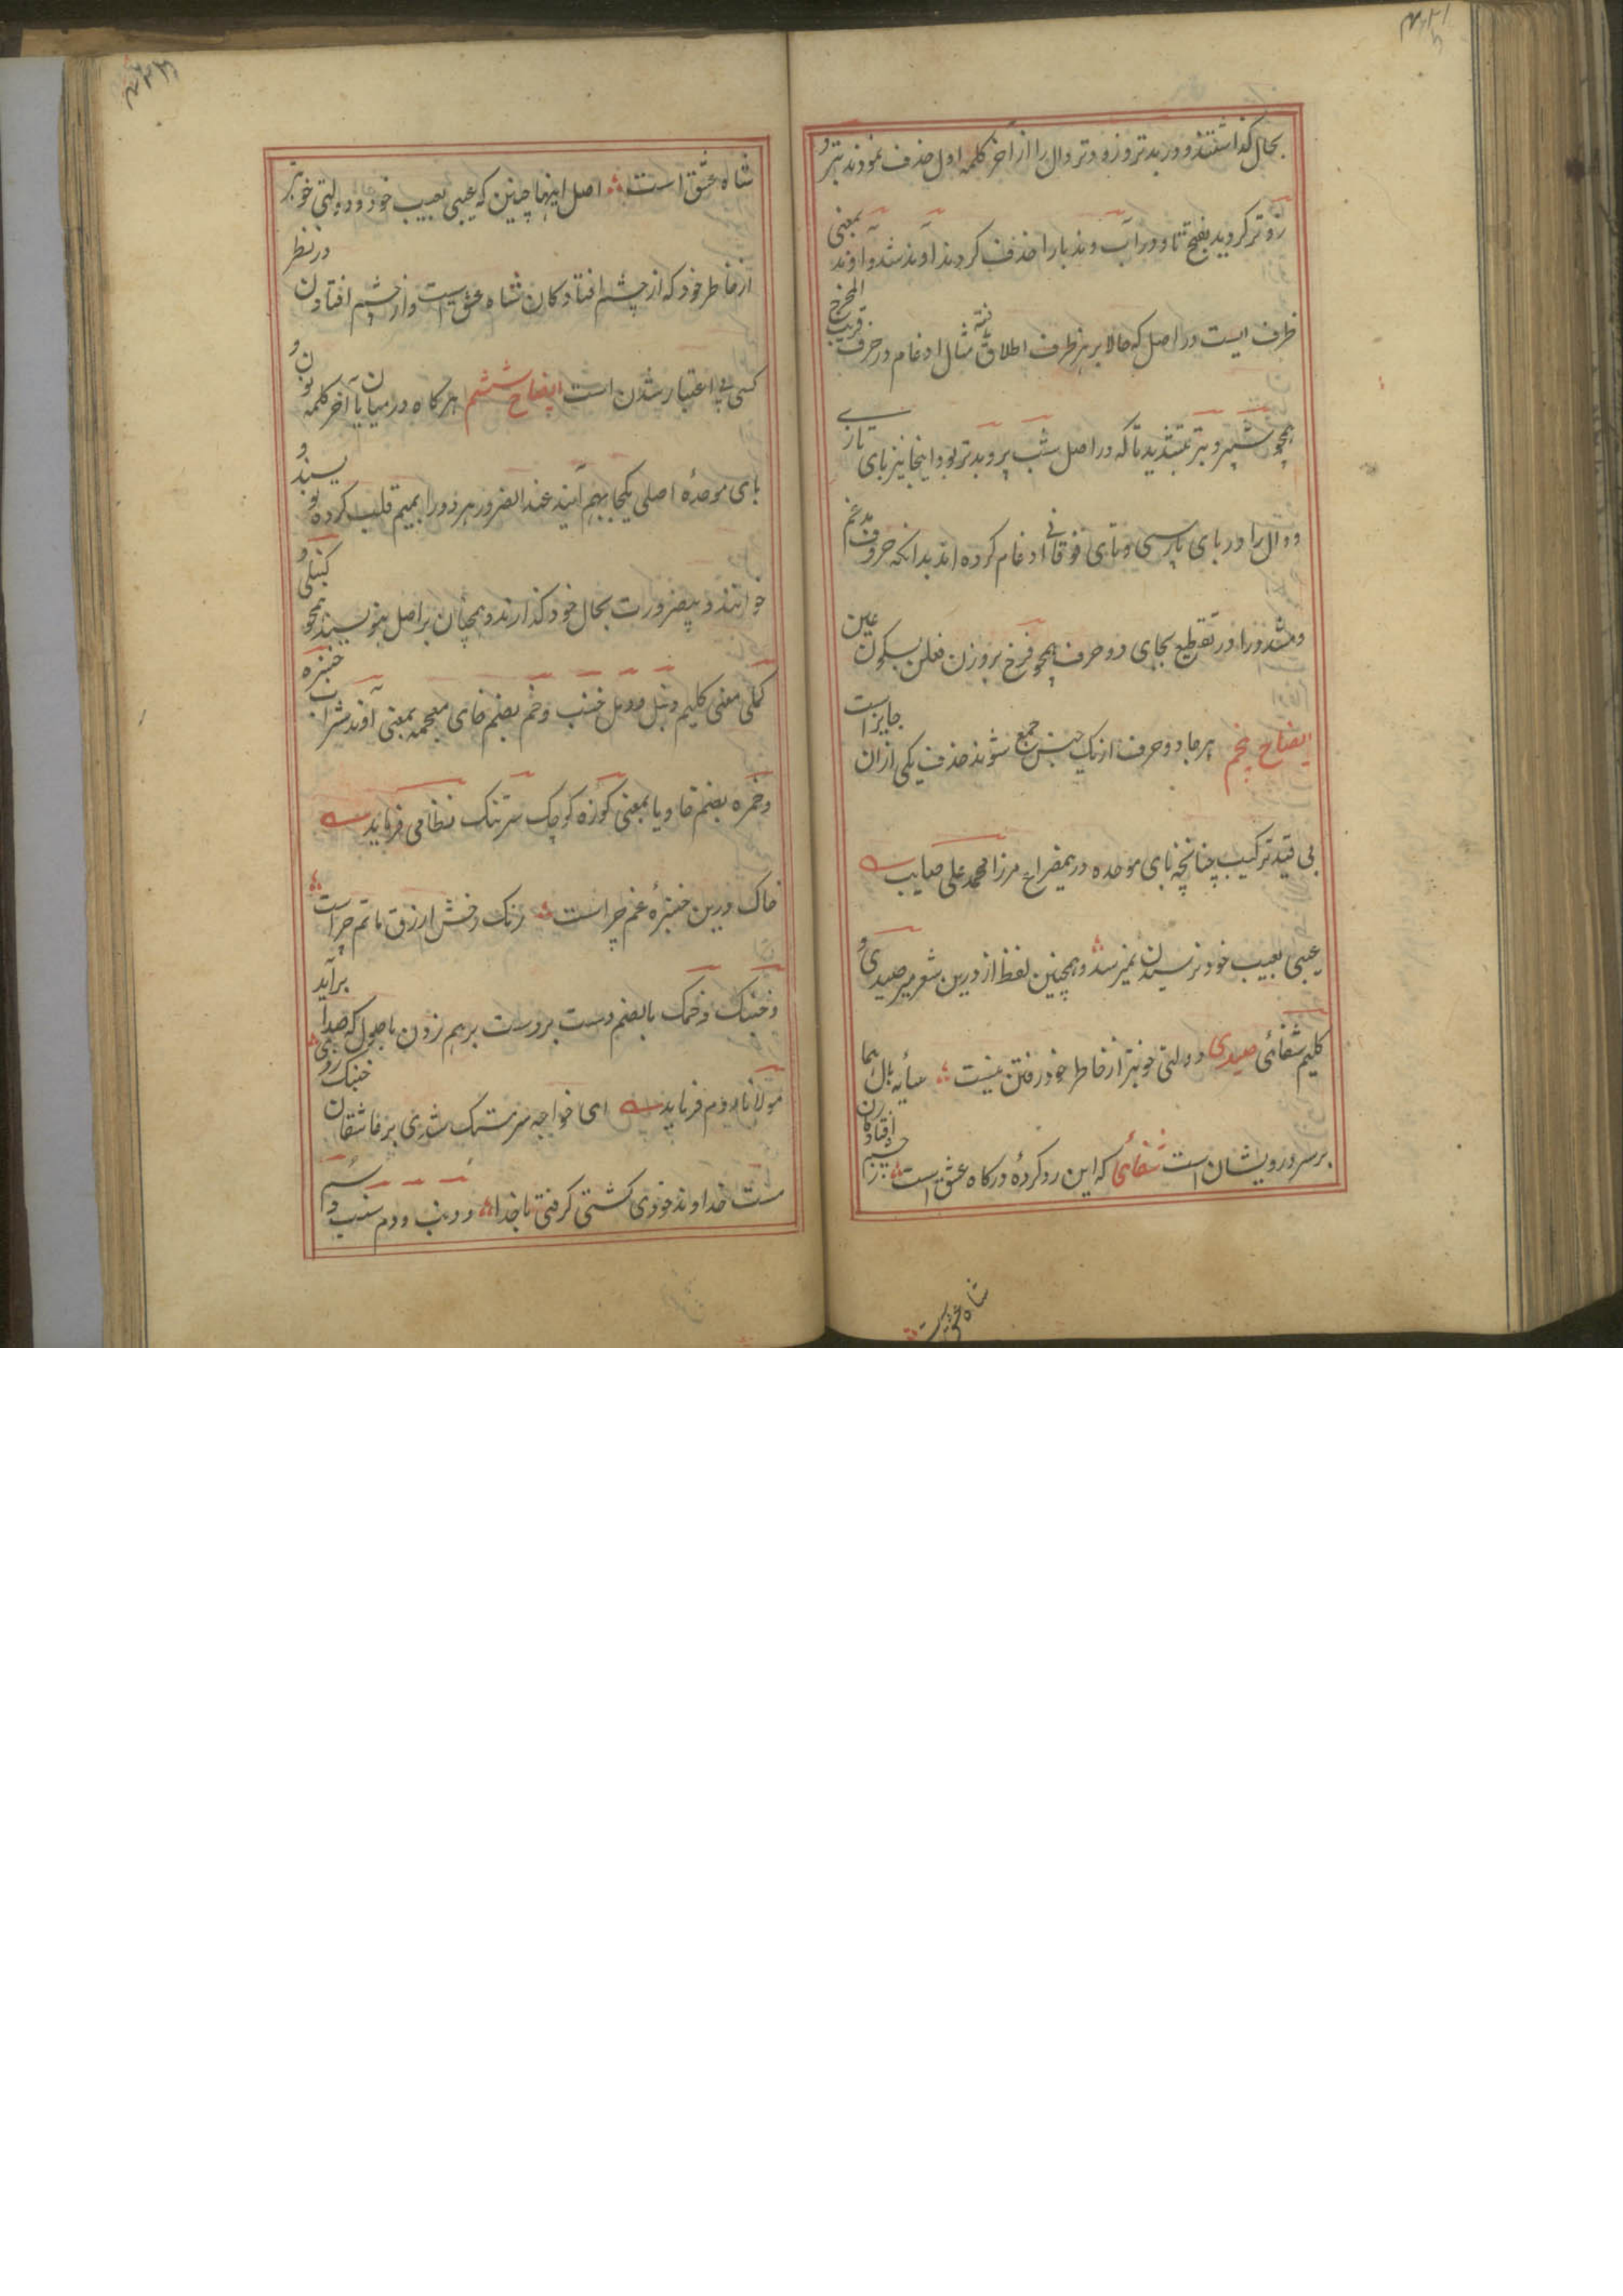 بحال گذاشتند و در بدتر و زودتر دال را از آخر کلمه اول حذف نمودند بتر و
زوتر گردید بفتح تا و در آب وند با را حذف کردند آوند شد و آوند بمعنی
ظرف ایست در اصل که حالا بر هر ظرف اطلاق یافته مثال ادغام در حرف قریب المخرج
همچو شپر و بتر بتشدید تا که در اصل شب پر و بدتر بود اینجا نیز بای تازی
و دال را در بای پارسی و تای فوقانی ادغام کرده اند بدانکه حروف مدغم
و مشدد را در تقطیع بجای دو حرف همچو فرخ بر وزن فعلن بسکون عین
ایضاح پنجم هر جا دو حرف از یک جنس جمع شوند حذف یکی ازان جایز است
بی قید ترکیب چنانچه بای موحده درین مصراع مرزا محمد علی صایب
عیبی بعیب خود نرسیدن نمیرسد و همچنین لفظ از درین شعر میر صیدی و
کلیم شفائی صیدی دولتی خوبتر از خاطر خود رفتن نیست سایه بال هما
بر سر درویشان است شفائی که این رو کرده درگاه عشق است ز چشم افتادگان
شاه عشق است
شاه عشق است اصل اینها چنین که عیبی بعیب خود و دولتی خوبتر
از خاطر خود که از چشم افتادگان شاه عشق است و از چشم افتادن در نظر
کسی بی اعتبار شدن است ایضاح ششم هر گاه در میان یا آخر کلمه نون و
بای موحده اصلی یکجا بهم آیند عند الضرور هر دو را بمیم قلب کرده نویسند و
خوانند و بیضرورت بحال خود گذارند و همچنان بر اصل بنویسند همچو کنبلی و
کملی معنی گلیم و دنبل و دمل خنب و خم بضم خای معجمه بمعنی آوند شراب خنبره
و خمره بضم خا و یا بمعنی کوزه کوچک سر تنگ نظامی فرماید
خاک درین خنبره غم چراست رنگ خمش ازرق ماتم چراست
و خنبک و خمک بالضم دست بر دست بر هم زدن باصول که صدا برآید
مولانا روم فرماید ای خواجه سرمستک شدی بر عاشقان خنبک زدی
مست خداوند خودی کشتی گرفتی با خدا و دنب و دم سنب و سم